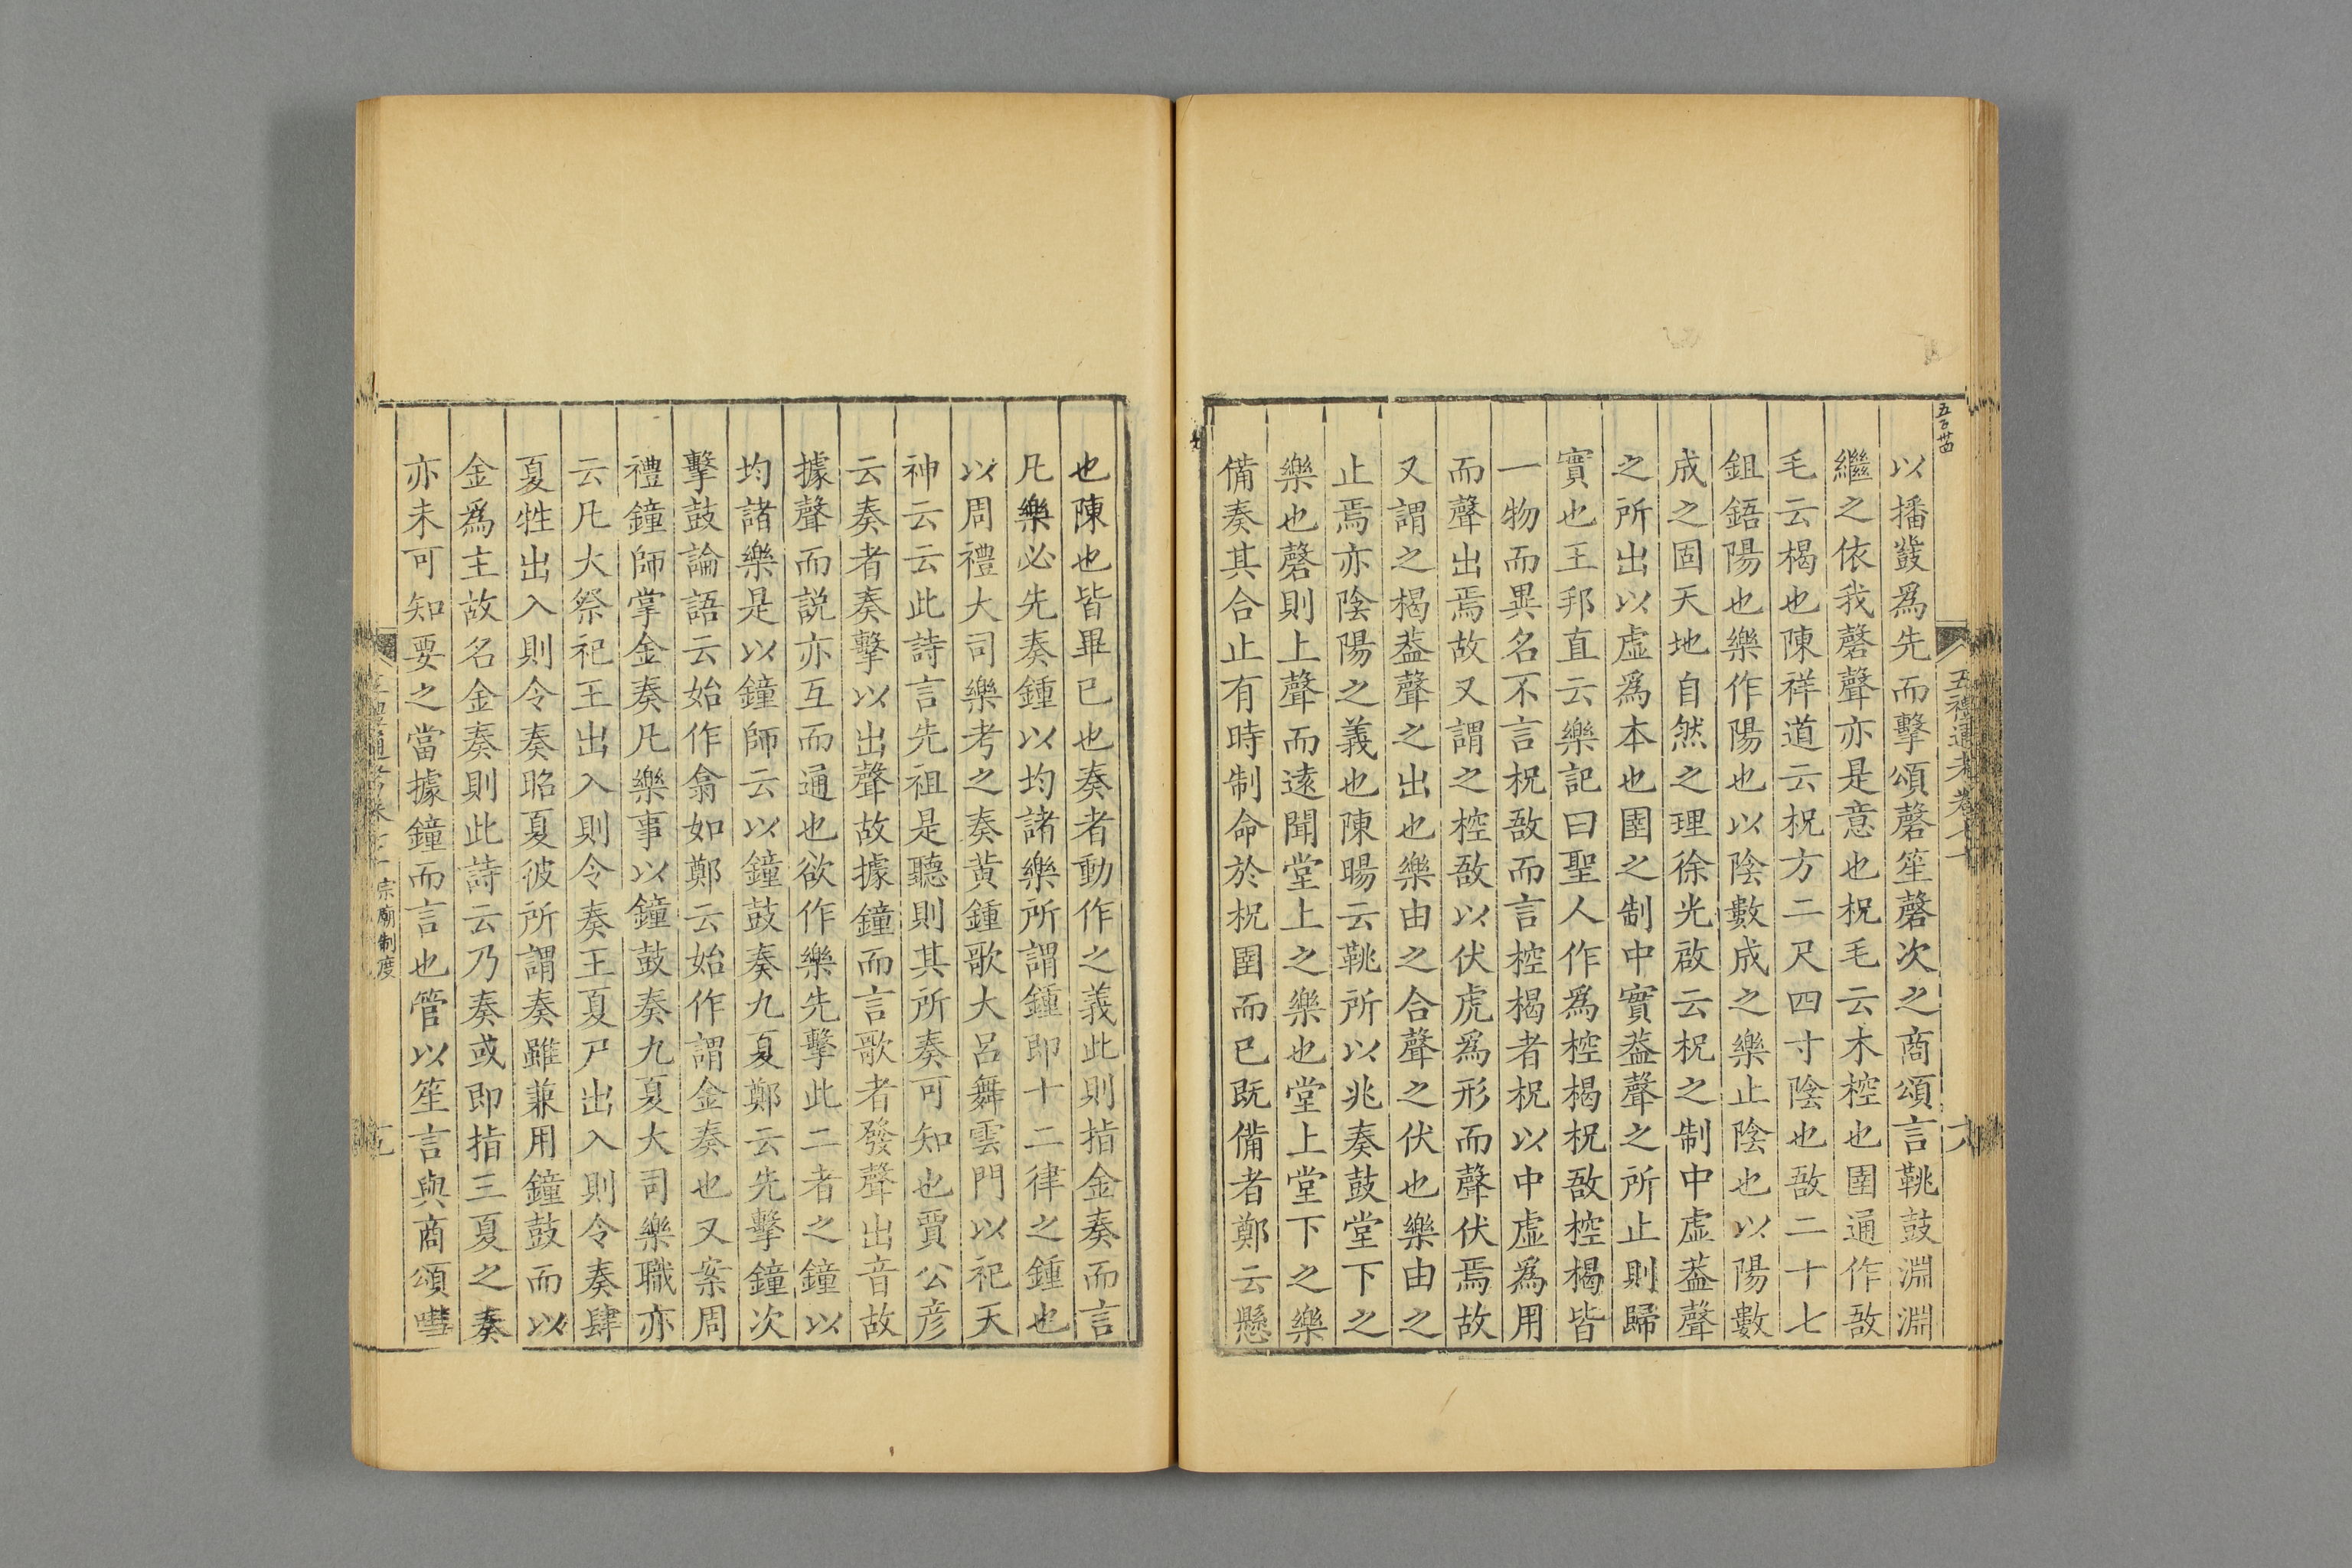 以播鼗爲先而擊頌磬笙磬次之商頌言鞉鼓淵淵
繼之依我磬聲亦是意也柷毛云木椌也圉通作敔
毛云楬也陳祥道云柷方二尺四寸陰也敔二十七
鉏鋙陽也樂作陽也以陰數成之樂止陰也以陽數
成之固天地自然之理徐光啟云柷之制中虛葢聲
之所出以虛爲本也圉之制中實葢聲之所止則歸
實也王邦直云樂記曰聖人作爲椌楬柷敔椌楬皆
一物而異名不言柷敔而言椌楬者柷以中虛爲用
而聲出焉故又謂之椌敔以伏虎爲形而聲伏焉故
又謂之楬葢聲之出也樂由之合聲之伏也樂由之
止焉亦陰陽之義也陳暘云鞉所以兆奏鼓堂下之
樂也磬則上聲而遠聞堂上之樂也堂上堂下之樂
備奏其合止有時制命於柷圉而已既備者鄭云懸
也陳也皆畢已也奏者動作之義此則指金奏而言
凡樂必先奏鍾以均諸樂所謂鍾即十二律之鍾也
以周禮大司樂考之奏黄鍾歌大呂舞雲門以祀天
神云云此詩言先祖是聽則其所奏可知也賈公彦
云奏者奏擊以出聲故據鐘而言歌者發聲出音故
據聲而説亦互而通也欲作樂先擊此二者之鐘以
均諸樂是以鐘師云以鐘鼓奏九夏鄭云先擊鐘次
擊鼓論語云始作翕如鄭云始作謂金奏也又案周
禮鐘師掌金奏凡樂事以鐘鼓奏九夏大司樂職亦
云凡大祭祀王出入則令奏王夏尸出入則令奏肆
夏牲出入則令奏昭夏彼所謂奏雖兼用鐘鼓而以
金爲主故名金奏則此詩云乃奏或即指三夏之奏
亦未可知要之當據鐘而言也管以笙言與商頌嘒
宗廟制度